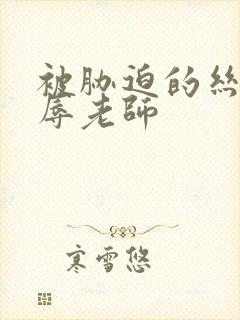 被胁迫的絲
辱老師
寒雪悠